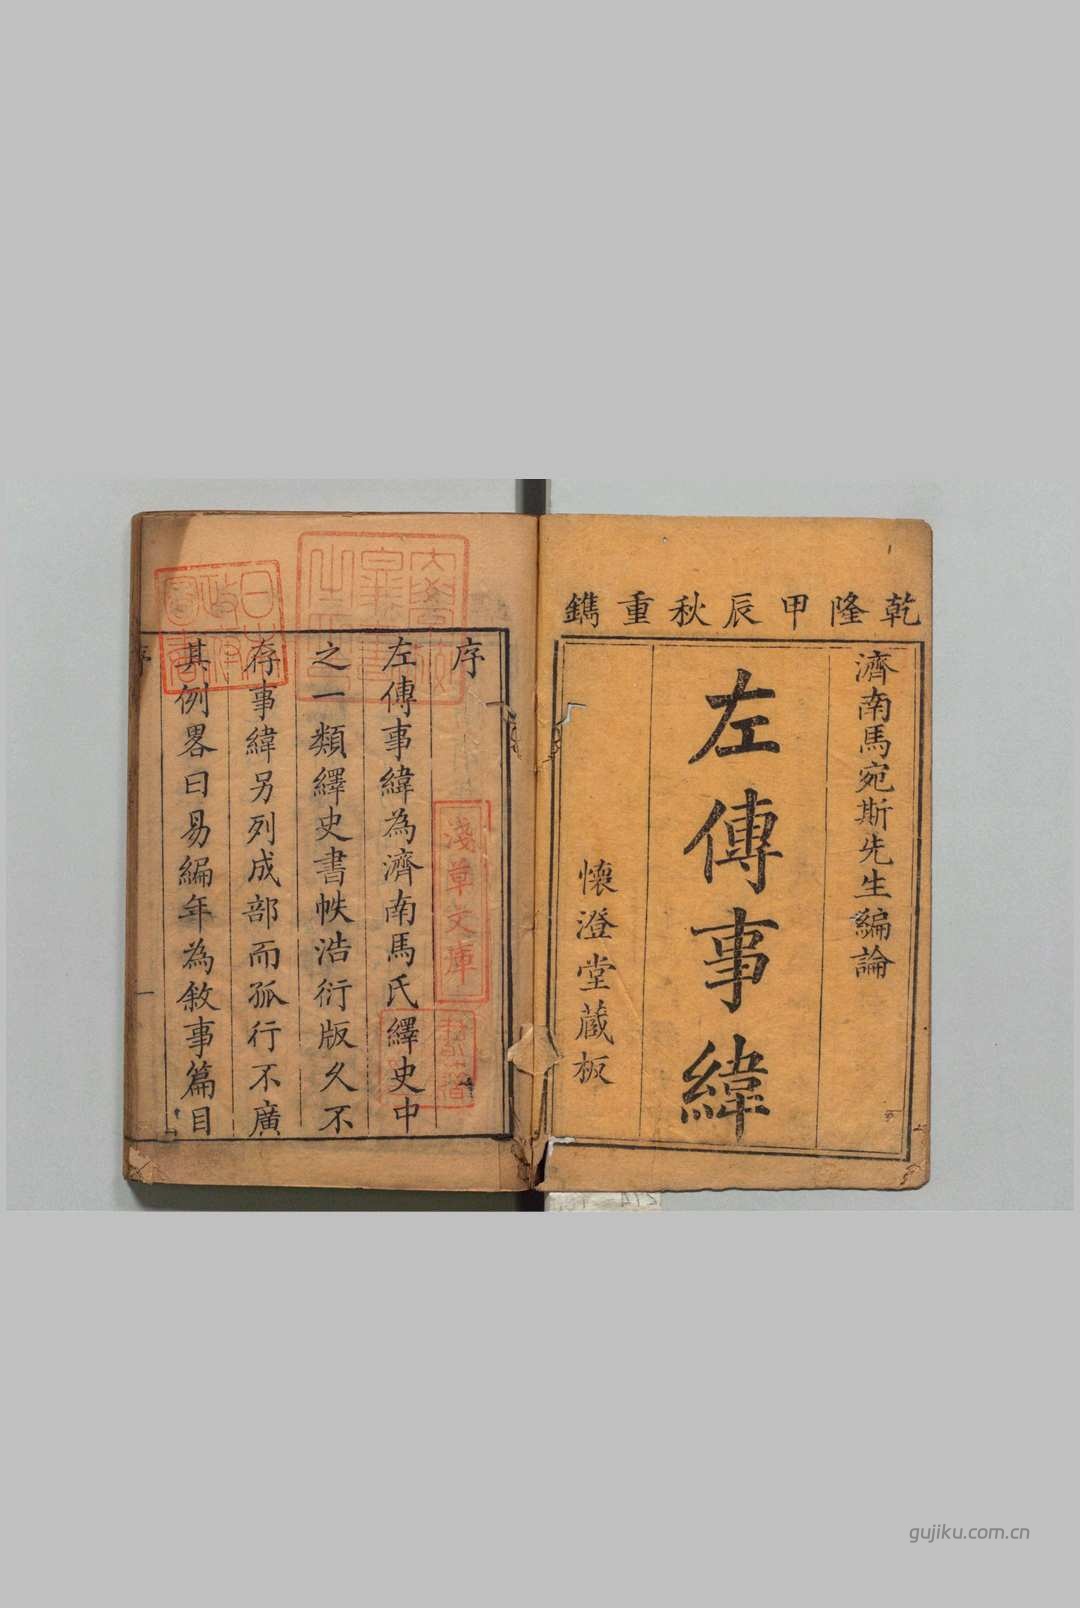 乾隆甲辰秋重鐫
濟南馬宛斯先生編論
左傳事緯
懷澄堂藏板
序
左傳事緯為濟南馬氏繹史中
之一類繹史書帙浩衍版久不
存事緯另列成部而孤行不廣
其例畧曰易編年為敘事篇目
序
一
淺草文庫
日本
政府
圖書
gujiku.com.cn